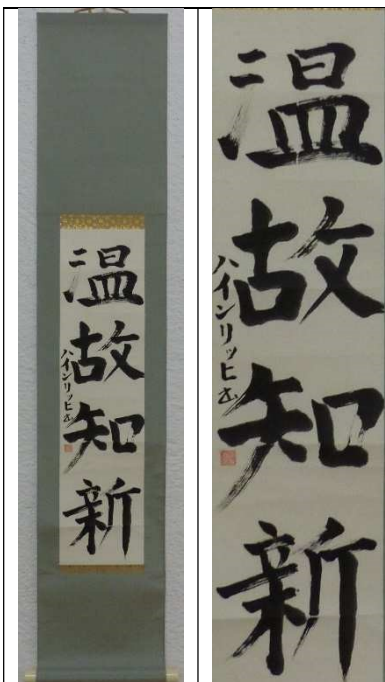 温故知新
ハインリッヒ
温故知新
ハインリッヒ